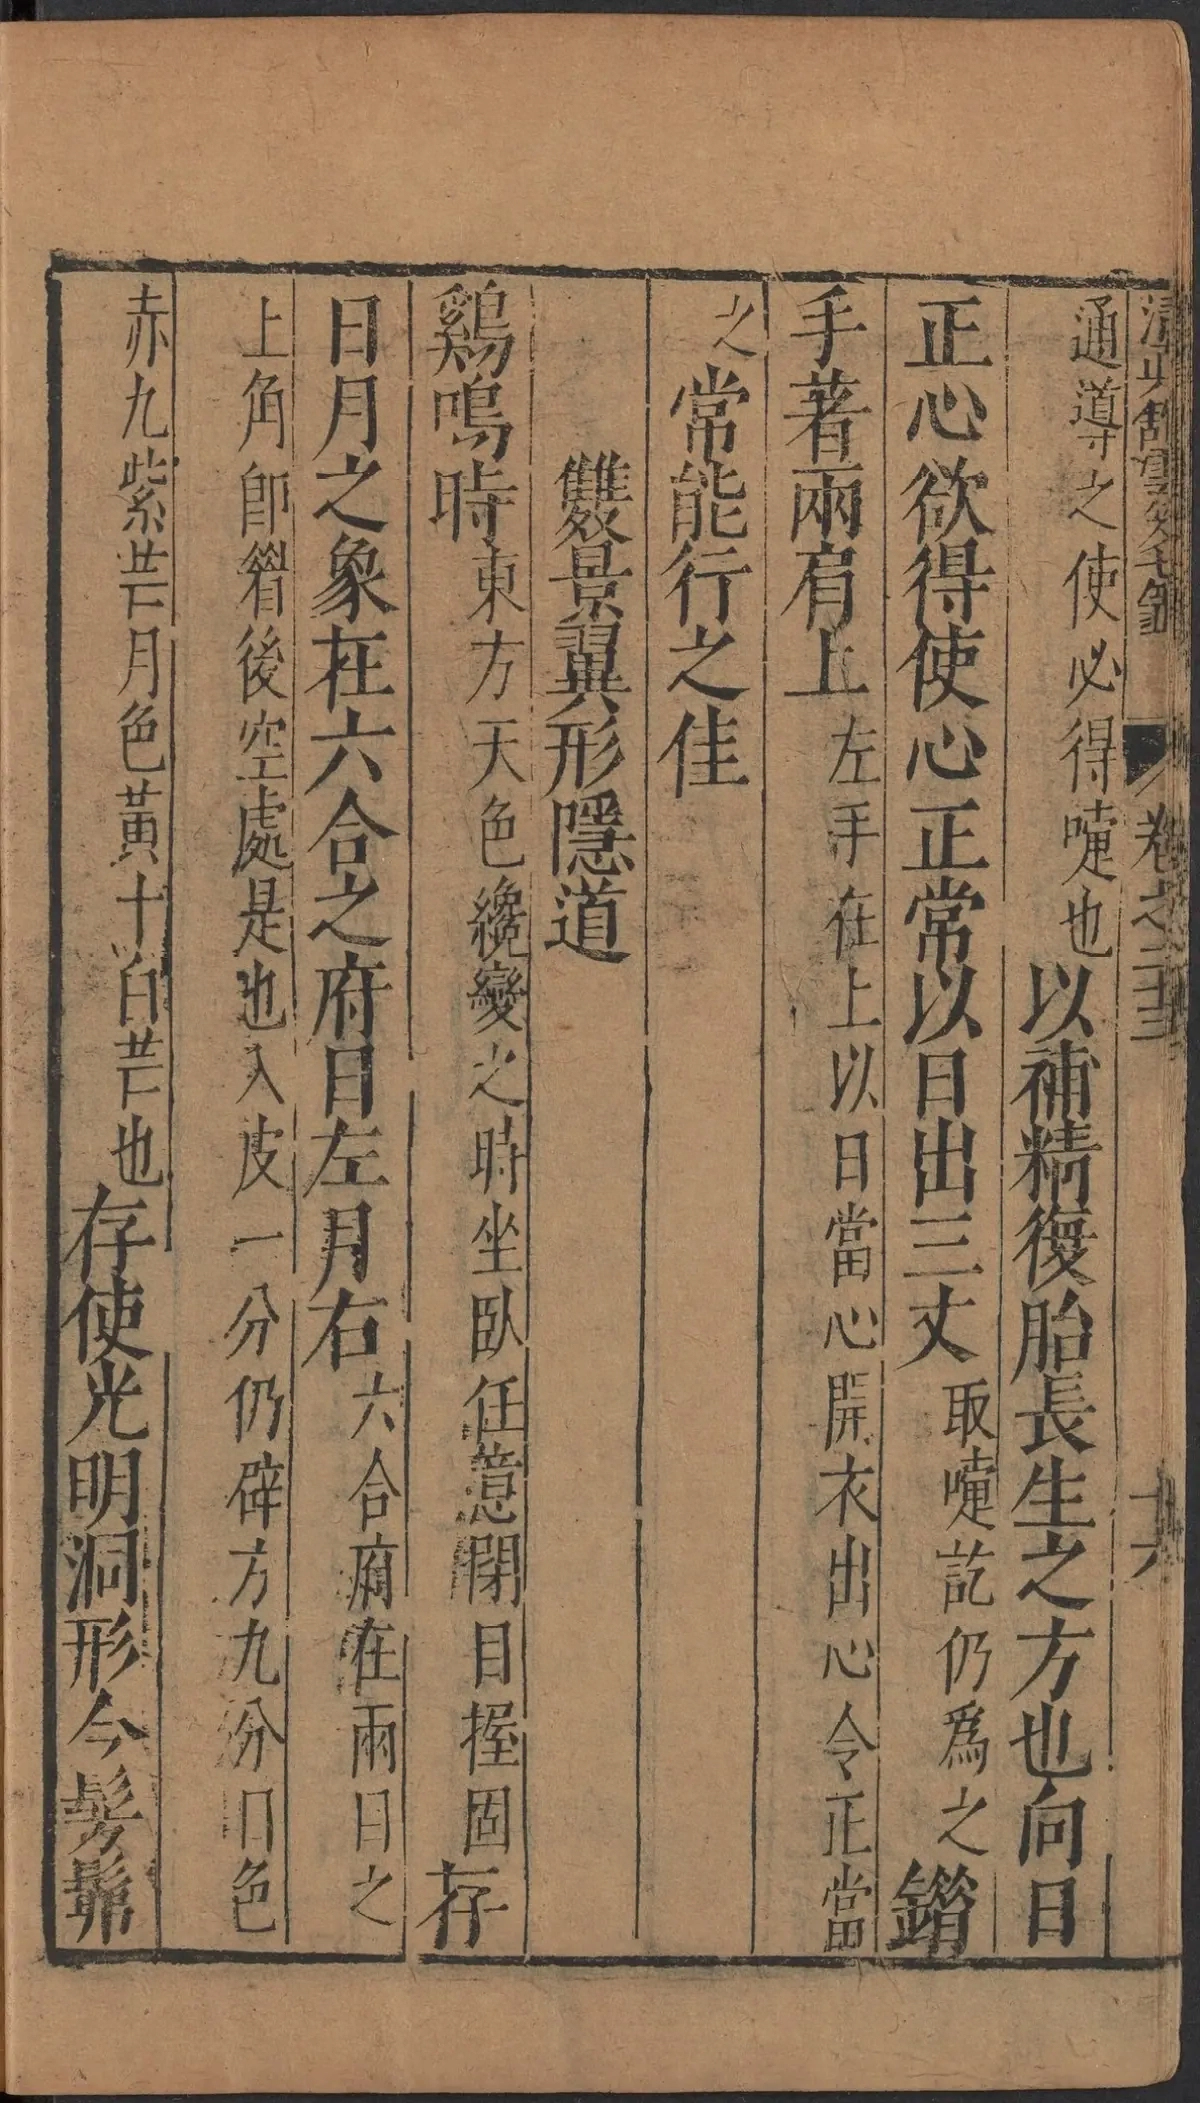 清真館雲笈七籤 卷之二十三 十六
通導之使必得嚏也以補精復胎長生之方也向日
正心欲得使心正常以日出三丈取嚏訖仍爲之錯
手著兩肩上左手在上以日當心開衣出心令正當
之常能行之佳
雙景翼形隱道
鷄鳴時東方天色纔變之時坐臥任意閉目握固存
日月之象在六合之府日左月右六合府在兩目之
上角卽䫌後空處是也入皮一分仍辟方九分日色
赤九紫芒月色黃十白芒也存使光明洞形今髣髴